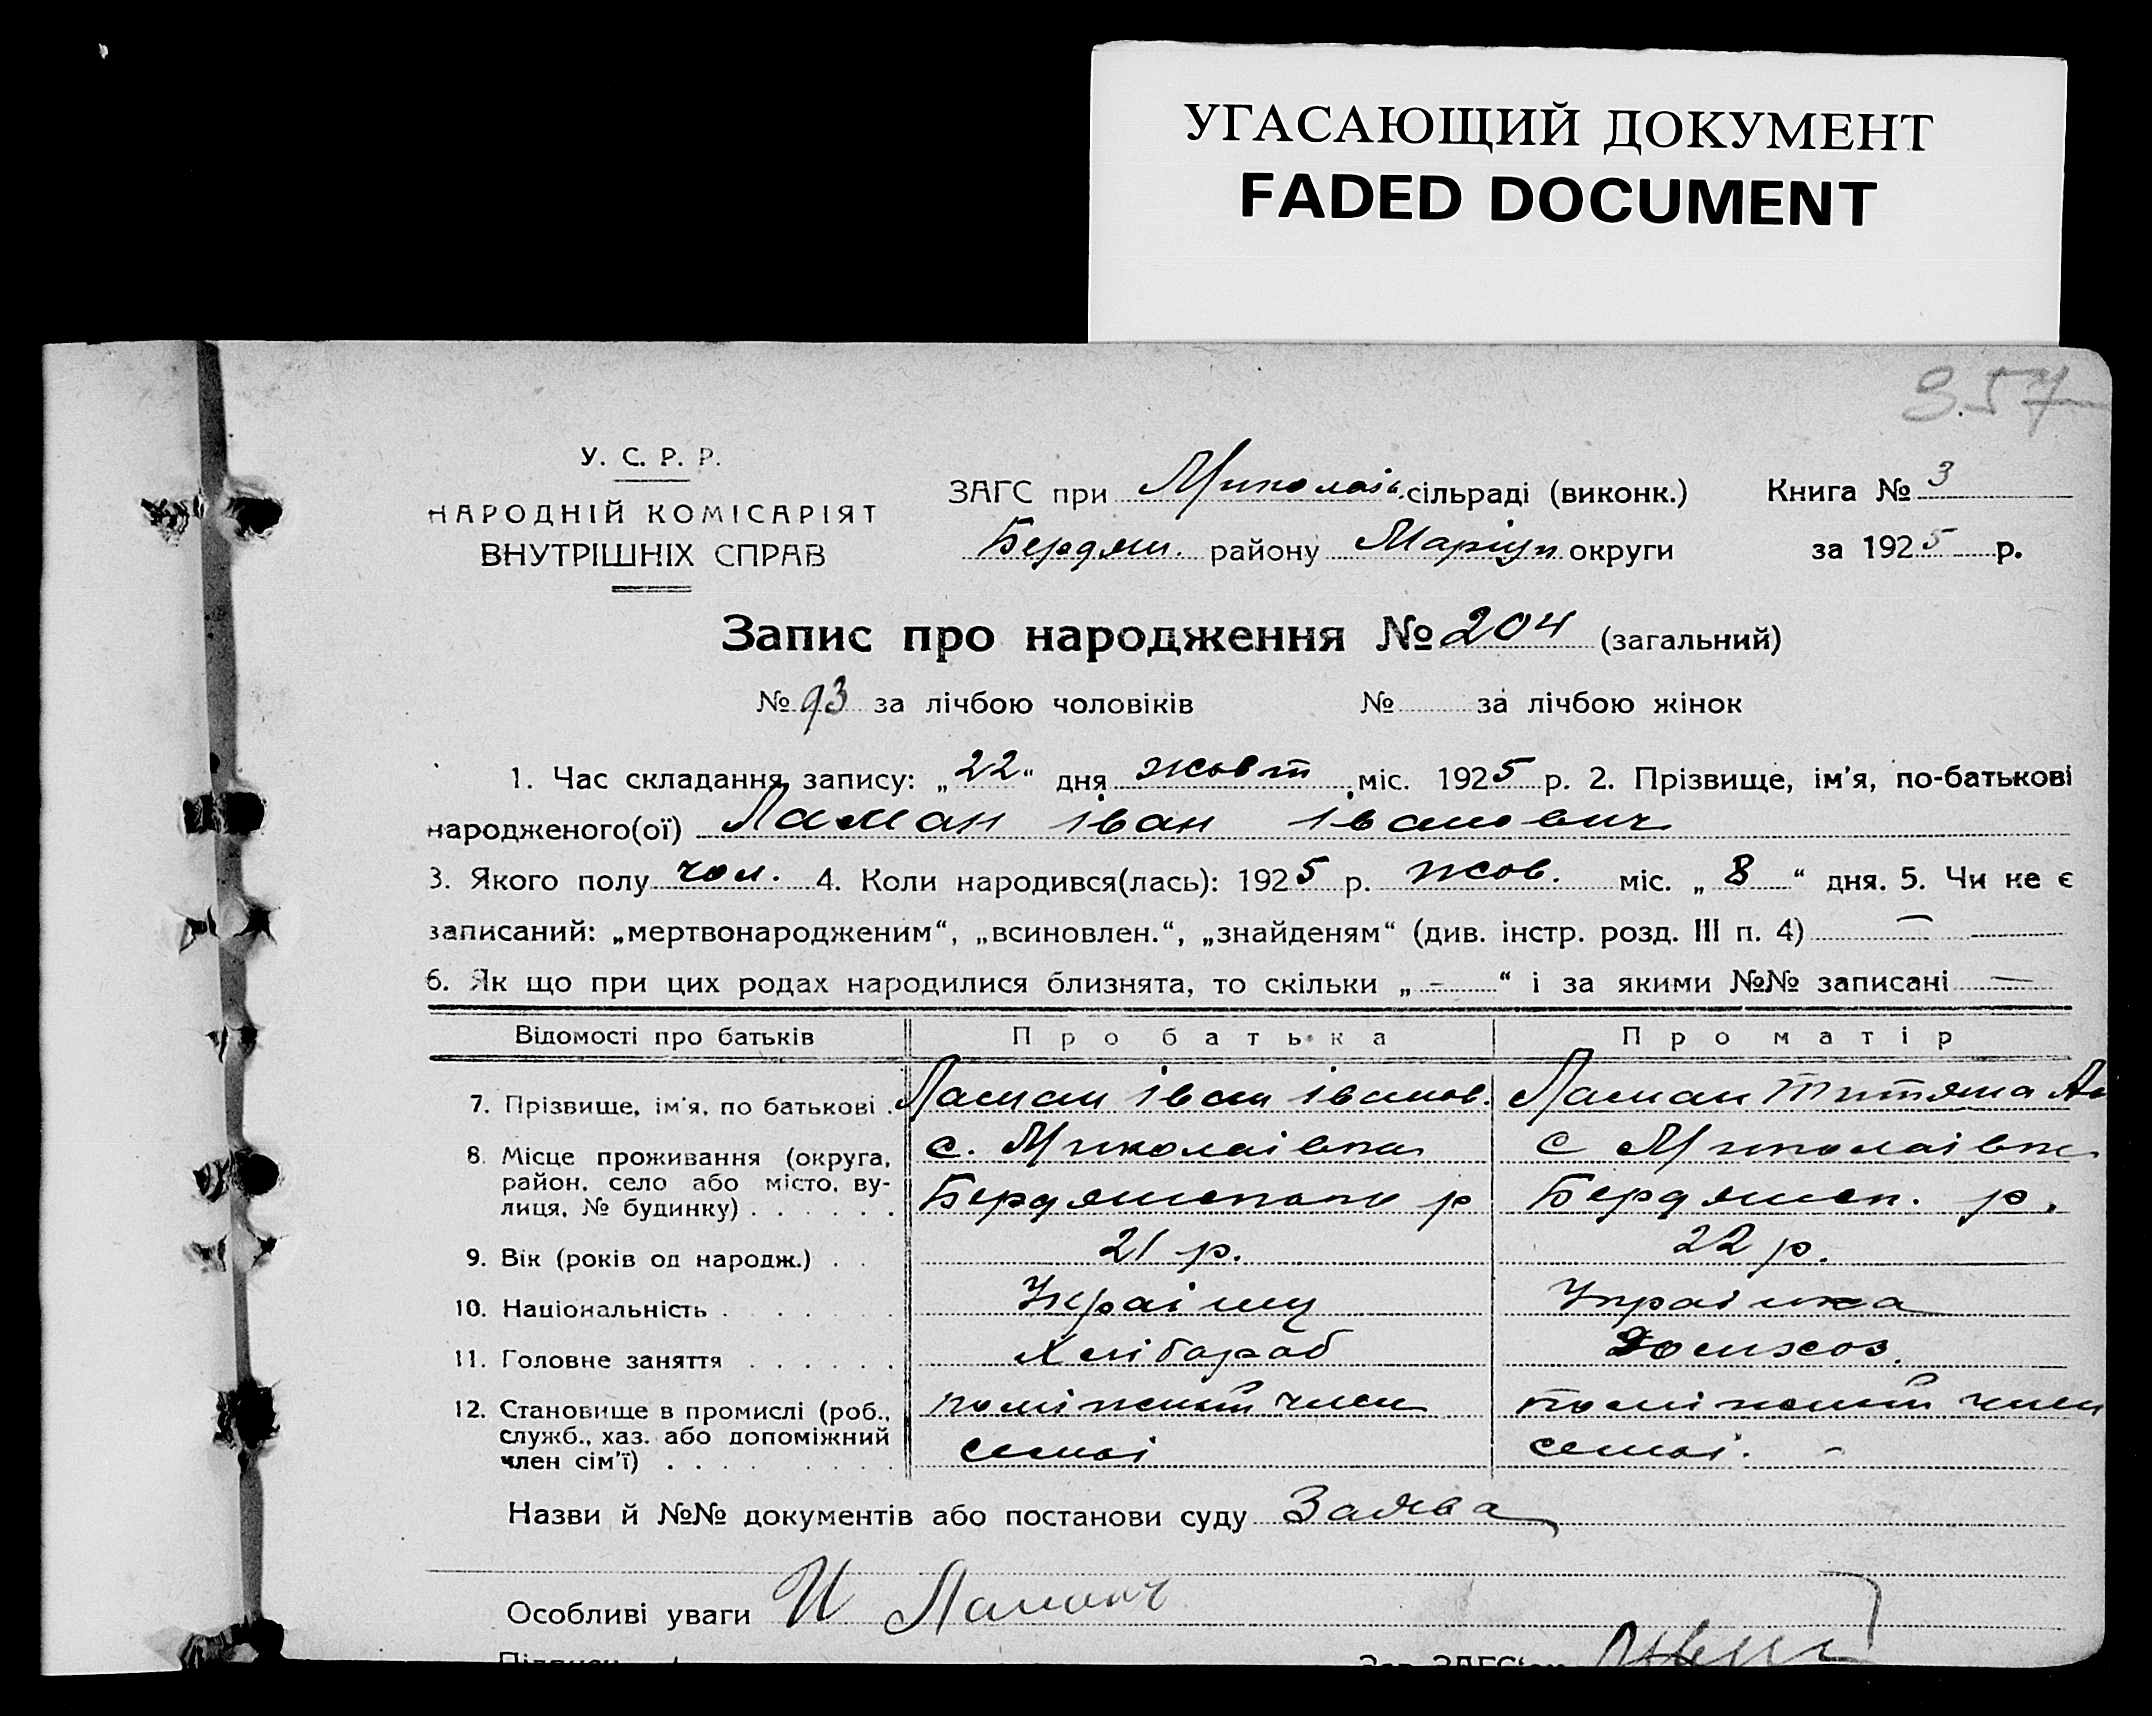 УГАСАЮЩИЙ ДОКУМЕНТ
FADED DOCUMENT
357
У. С. Р. Р.
НАРОДНІЙ КОМІСАРІЯТ
ВНУТРІШНІХ СПРАВ
ЗАГС при Миколаїв. сільраді (виконк.) Книга № 3
Бердян. району Маріуп округи за 1925 р.
Запис про народження № 204 (загальний)
№ 93 за лічбою чоловіків № за лічбою жінок
1. Час складання запису: „22“ дня жовт міс. 1925 р. 2. Прізвище, ім'я, по-батькові
народженого(ої) Ламан Іван Іванович
3. Якого полу чол. 4. Коли народився(лась): 1925 р. жов. міс. „8“ дня. 5. Чи не є
записаний: „мертвонародженим“, „всиновлен.“, „знайденям“ (див. інстр. розд. III п. 4) —
6. Як що при цих родах народилися близнята, то скільки „ - “ і за якими №№ записані —
Відомості про батьків Про батька Про матір
7. Прізвище, ім'я, по батькові . Ламан Іван Іванов. Ламан Титяна
8. Місце проживання (округа, район, село або місто, вулиця, № будинку) . . . . . . с. Миколаівка с Миколаівка
Бердянського р Бердянск. р.
9. Вік (років од народж.) . . 21 р. 22 р.
10. Національність . . . . . Украінц Украінка
11. Головне заняття . . . . . . Хлібороб Домхоз.
12. Становище в промислі (роб., служб., хаз. або допоміжний член сім'ї) . . . . . . . член член
семьі семьі. -
Назви й №№ документів або постанови суду Заява
Особливі уваги И Ламан